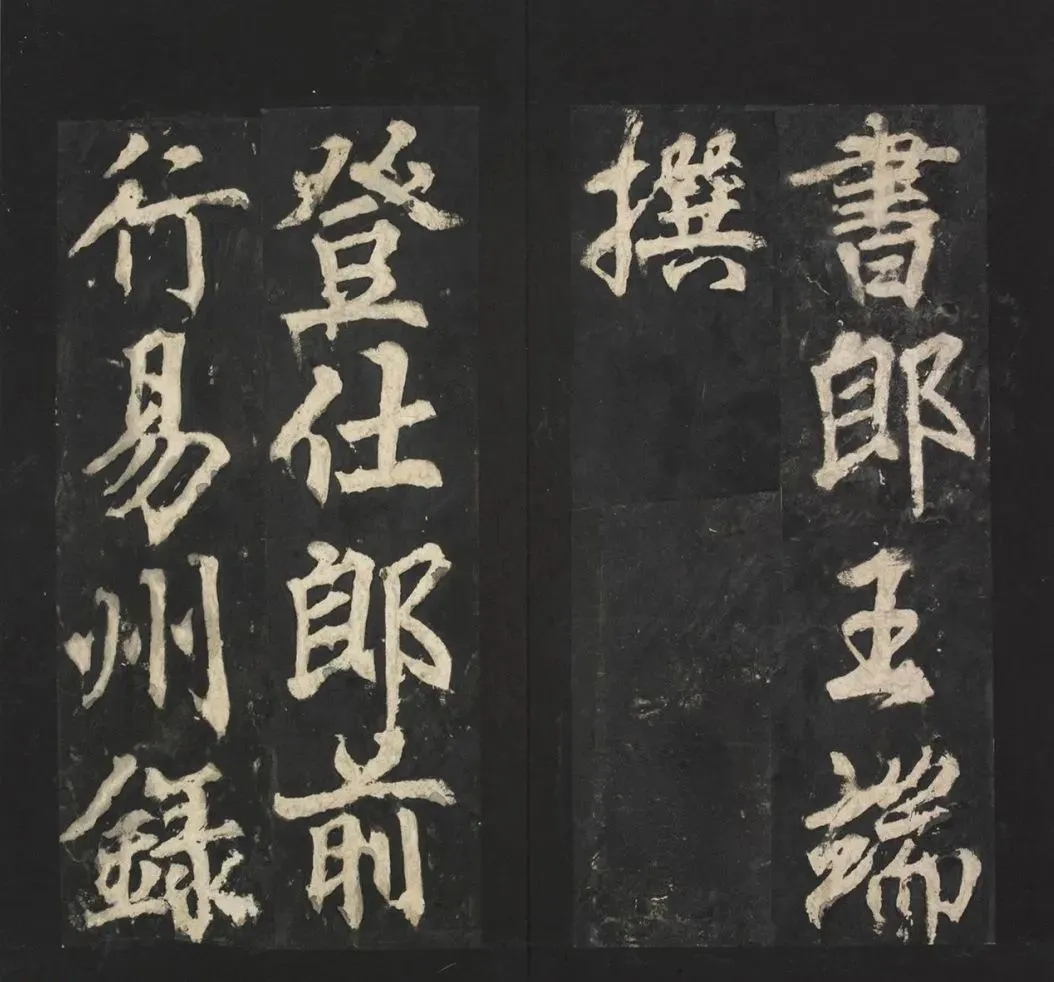 書郎王端
撰
登仕郎前
行易州錄